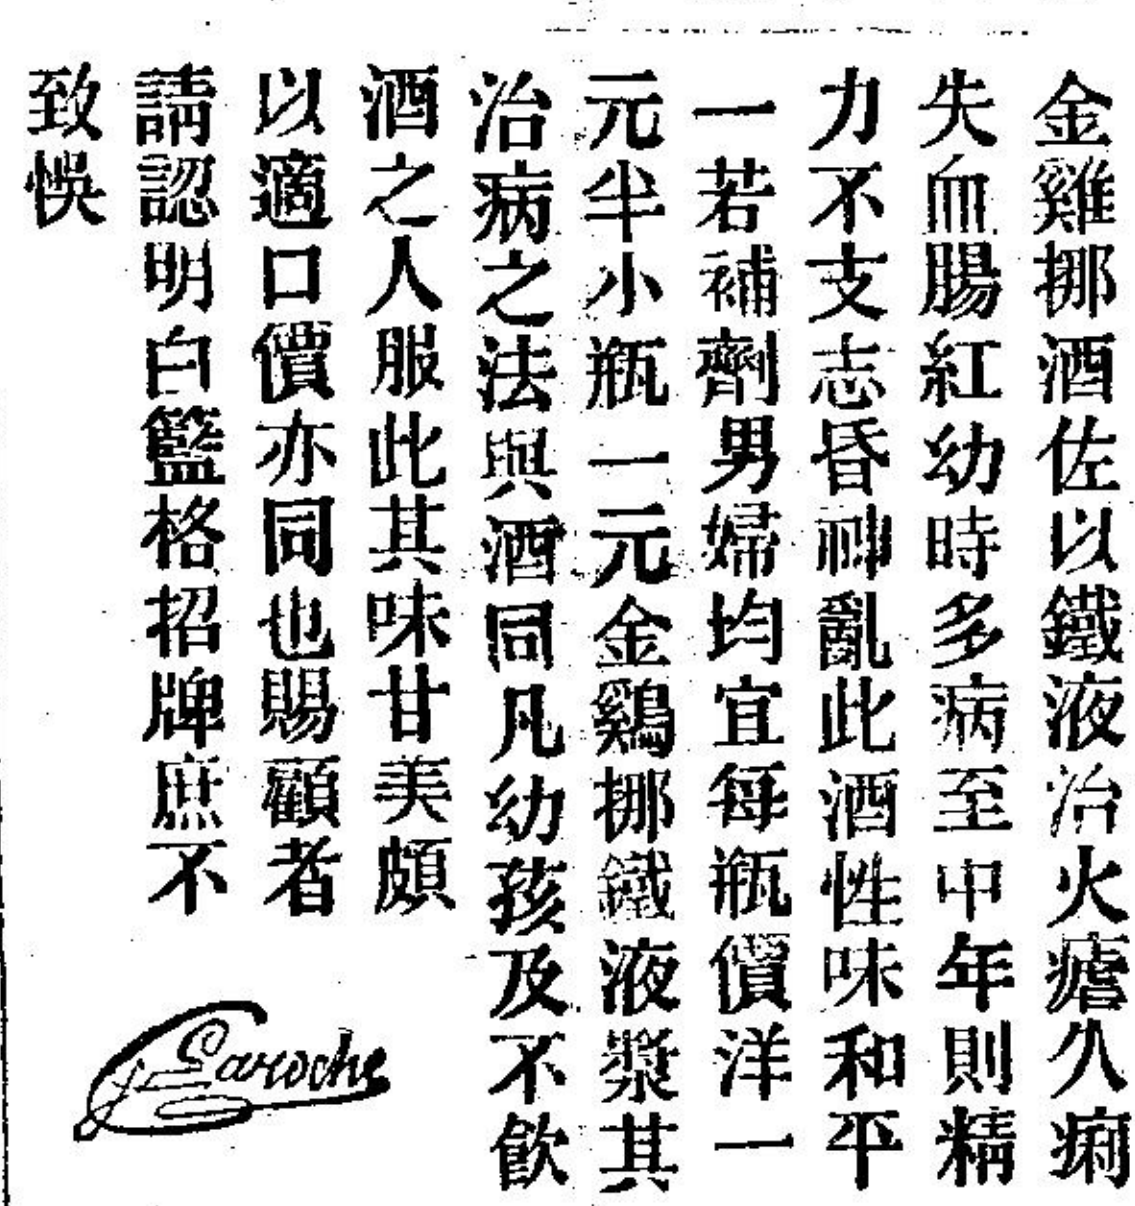 金雞挪酒佐以鐵液治火瘧久痢
失血腸紅幼時多病至中年則精
力不支志昏神亂此酒性味和平
一若補劑男婦均宜每瓶價洋一
元半小瓶一元金鷄挪鐵液漿其
治病之法與酒同凡幼孩及不飲
酒之人服此其味甘美頗
以適口價亦同也賜顧者
請認明白籃格招牌庶不
致悞
Laroche